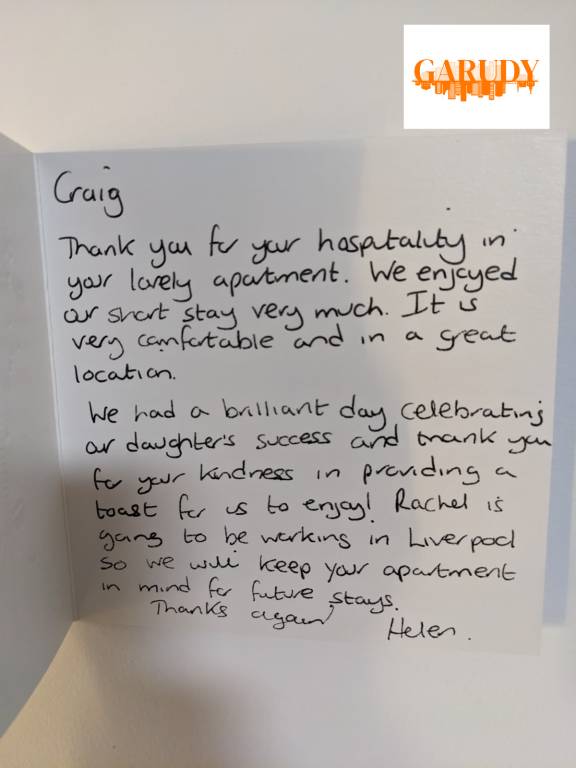 GARUDY
Craig
Thank you for your hospitality in
your lovely apartment. We enjoyed
our short stay very much. It is
very comfortable and in a great
location.
We had a brilliant day celebrating
our daughter's success and thank you
for your kindness in providing a
toast for us to enjoy! Rachel is
going to be working in Liverpool
so we will keep your apartment
in mind for future stays.
Thanks again
Helen.